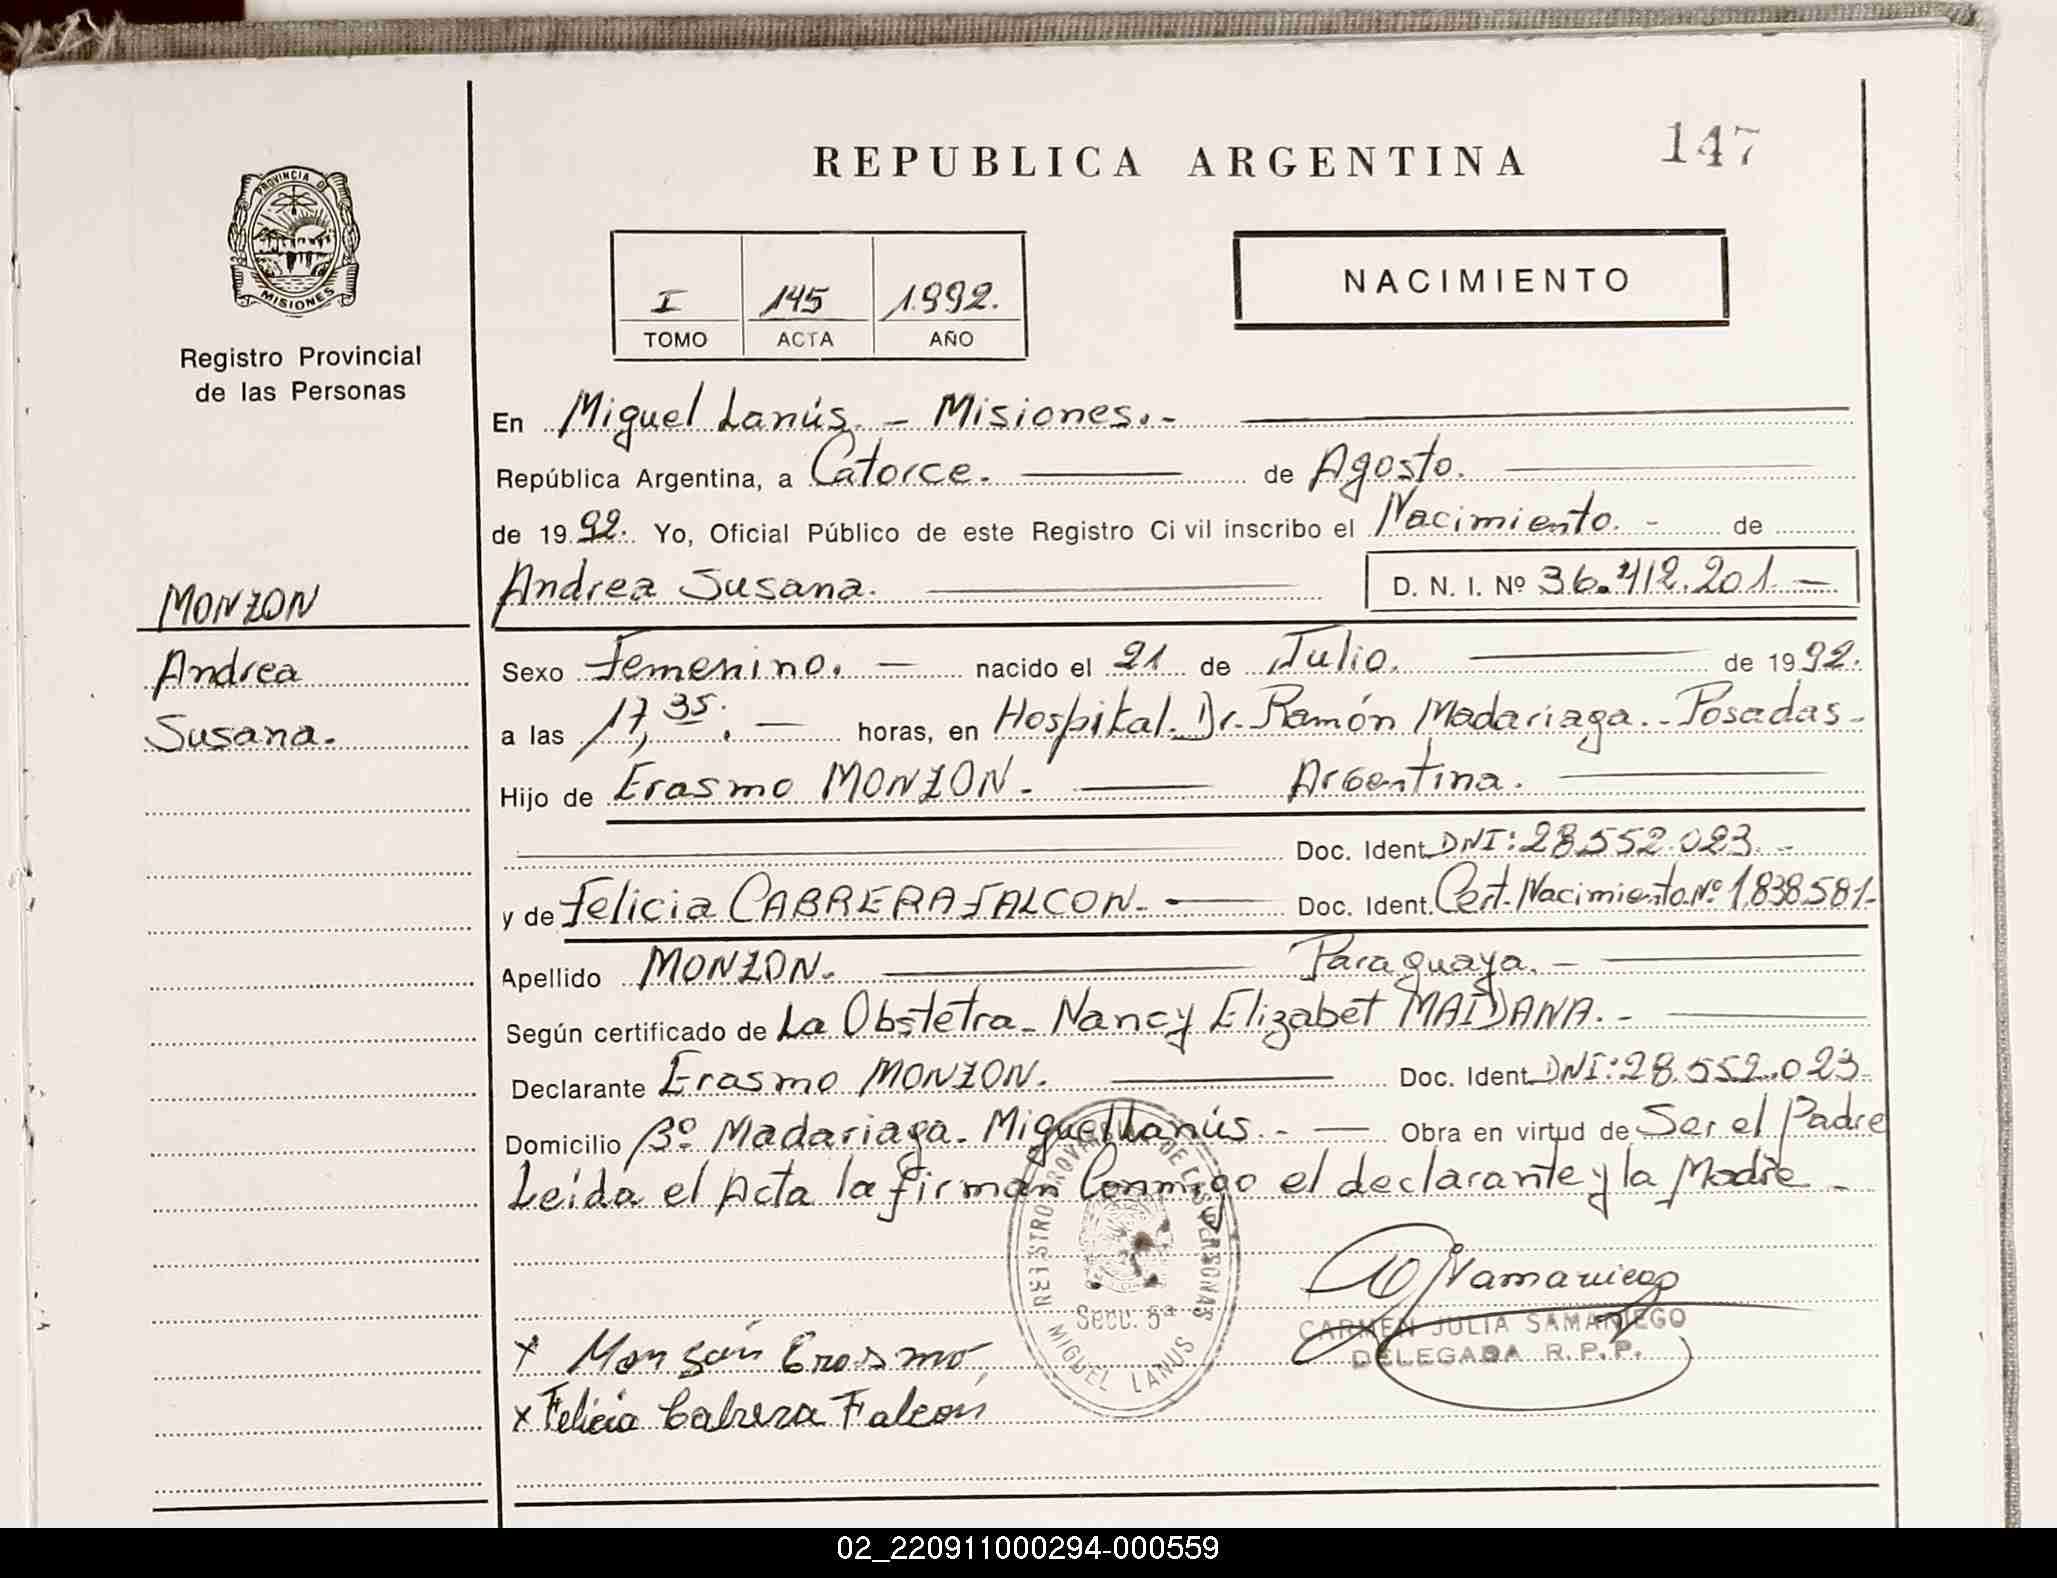 REPUBLICA ARGENTINA
147
PROVINCIA DE
MISIONES
Registro Provincial
de las Personas
NACIMIENTO
I 145 1.992.
TOMO ACTA AÑO
En Miguel Lanús. - Misiones.-
República Argentina, a Catorce. de Agosto.
de 1992. Yo, Oficial Público de este Registro Civil inscribo el Nacimiento. - de
Andrea Susana. D. N. I. Nº 36.412.201.-
MONZON
Andrea
Susana.
Sexo Femenino. - nacido el 21 de Julio. de 1992.
a las 17,35. - horas, en Hospital. Dr. Ramón Madariaga.-Posadas-
Hijo de Erasmo MONZON. - Argentina.
Doc. Ident. DNI: 28.552.023. -
y de Felicia CABRERA FALCON.- Doc. Ident. Cert. Nacimiento Nº 1.838.581-
Apellido MONZON. Paraguaya. -
Según certificado de La Obstetra- Nancy Elizabet MAIDANA. -
Declarante Erasmo MONZON. Doc. Ident. DNI: 28.552.023
Domicilio Bº Madariaga. Miguel Lanús. - Obra en virtud de Ser el Padre
Leida el Acta la firman Conmigo el declarante y la Madre -
REGISTRO PROVINCIAL DE LAS PERSONAS
Secc. 5ª
MIGUEL LANUS
CARMEN JULIA SAMANIEGO
DELEGADA R.P.P.
x Monzón Erasmo
x Felicia Cabrera Falcon
02_220911000294-000559